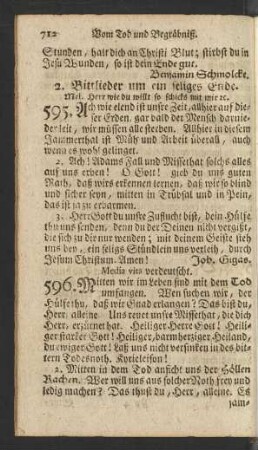 712 Vom Tod und Begräbniß.
Stunden, halt dich an Christi Blut; stirbst du in
Jesu Wunden, so ist dein Ende gut.
Benjamin Schmolcke.
2. Bittlieder um ein seliges Ende.
Mel. Herr wie du willt so schicks mit mir ꝛc.
595. Ach wie elend ist unsre Zeit, allhier auf die-
ser Erden. gar bald der Mensch darnie-
der leit, wir müssen alle sterben. Allhier in diesem
Jammerthal ist Müh und Arbeit überall, auch
wenn es wohl gelinget.
2. Ach! Adams Fall und Missethat solchs alles
auf uns erben! O Gott! gieb du uns guten
Rath, daß wirs erkennen lernen, daß wir so blind
und sicher seyn, mitten in Trübsal und in Pein,
das ist ja zu erbarmen.
3. Herr Gott du unsre Zuflucht bist, dein Hülfe
thu uns senden, denn du der Deinen nicht vergißt,
die sich zu dir nur wenden; mit deinem Geiste steh
uns bey, ein seligs Stündlein uns verleih, durch
Jesum Christum. Amen! Joh. Gigas.
Media vita verdeutscht.
596. Mitten wir im Leben sind mit dem Tod
umfangen. Wen suchen wir, der
Hülfe thu, daß wir Gnad erlangen? Das bist du,
Herr, alleine. Uns reuet unsre Missethat, die dich
Herr, erzürnet hat. Heiliger Herre Gott! Heili-
ger starker Gott! Heiliger, barmherziger Heiland,
du ewiger Gott! Laß uns nicht versinken in des bit-
tern Todesnoth. Kyrieleison!
2. Mitten in dem Tod anficht uns der Höllen
Rachen. Wer will uns aus solcher Noth frey und
ledig machen? Das thust du, Herr, alleine. Es
jam-